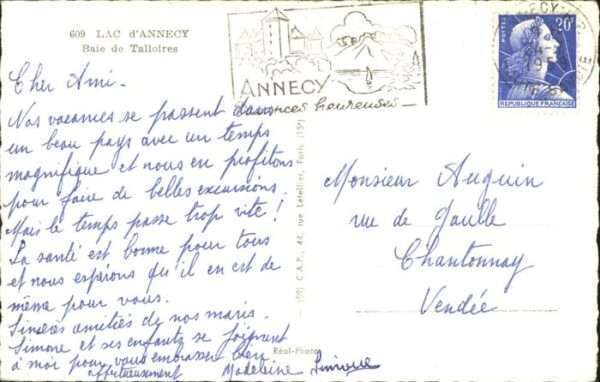 609 LAC d'ANNECY
Baie de Talloires
Cher Ami.
Nos vacances se passent dans
un beau pays avec un temps
magnifique et nous en profitons
pour faire de belles excursions.
Mais le temps passe trop vite !
La santé est bonne pour tous
et nous espérons qu'il en est de
même pour vous.
Sincères amitiés de nos maris.
Simone et ses enfants se joignent
à moi pour vous embrasser bien
affectueusement
Madeleine Simone
ANNECY
vacances heureuses
20F
POSTES
REPUBLIQUE FRANÇAISE
ANNECY
Monsieur Auguin
rue de Gaulle
Chantonnay
Vendée
C.A.P., 44, rue Letellier, Paris (15e)
Réal-Photo